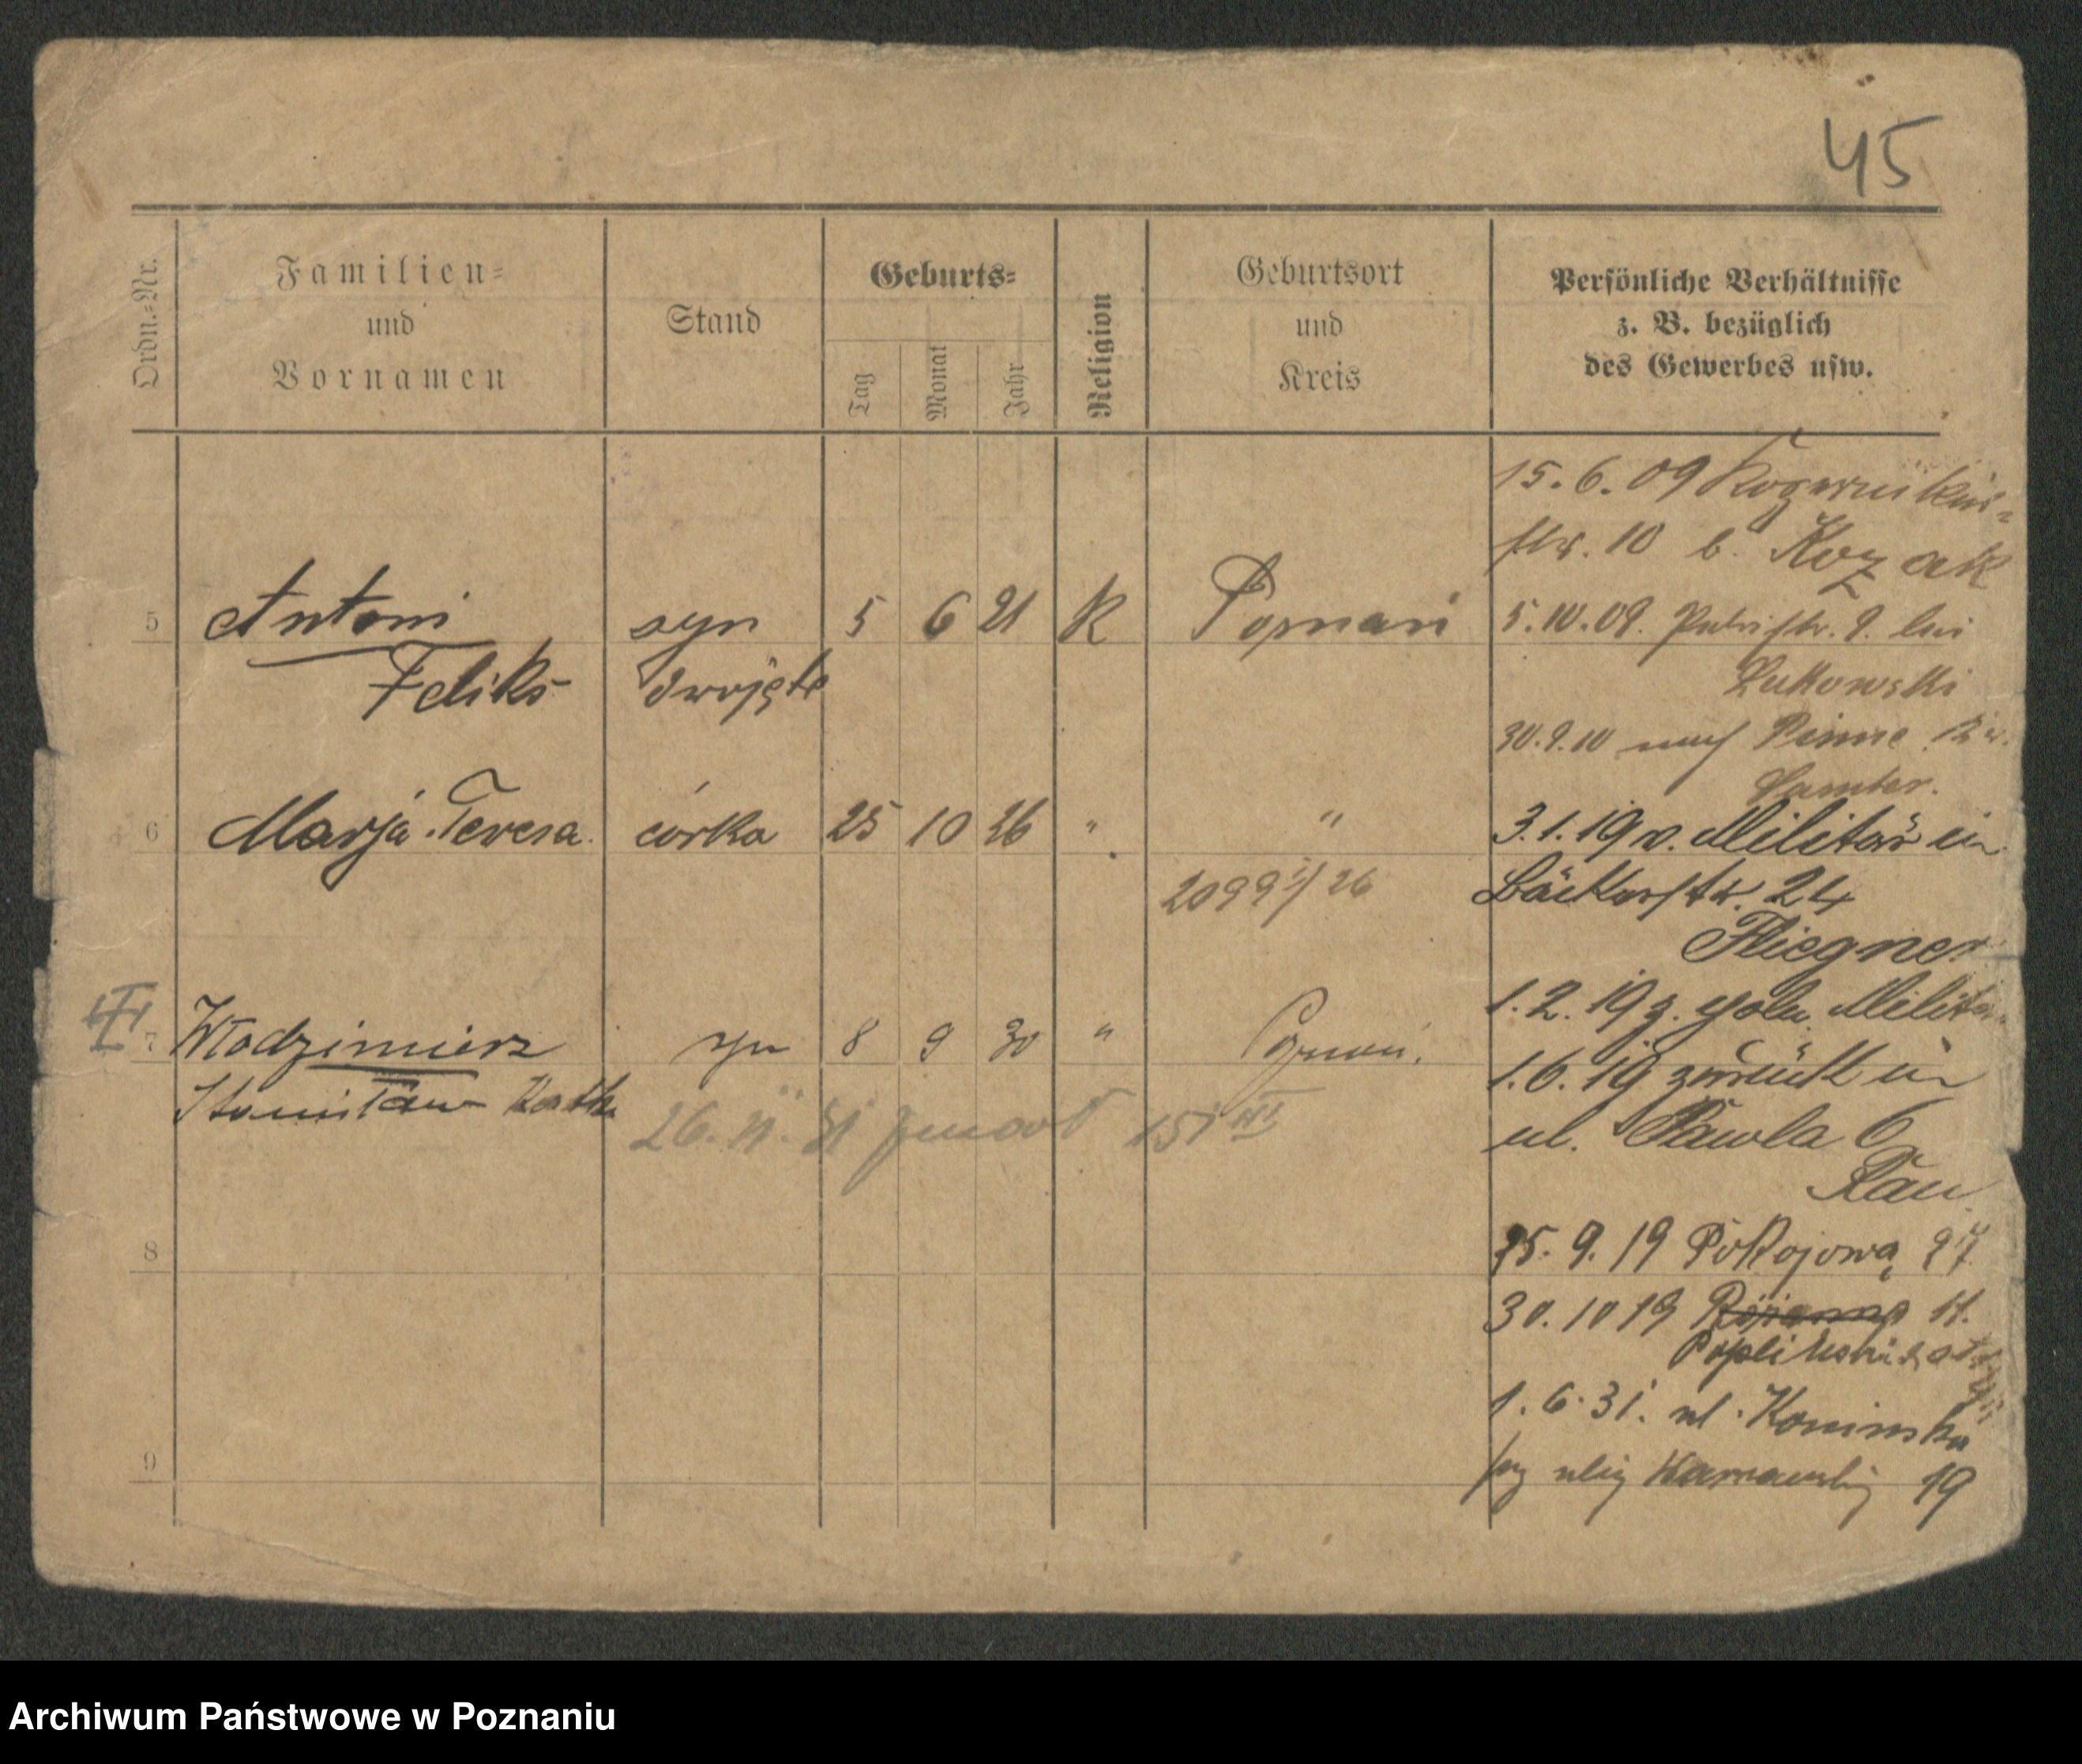 45
Ordn.-Nr.
Familien-
und
Vornamen
Stand
Geburts-
Tag
Monat
Jahr
Religion
Geburtsort
und
Kreis
Persönliche Verhältnisse
z. B. bezüglich
des Gewerbes usw.
15.6.09
str. 10 b. Kozak
5 Antoni syn 5 6 21 K Poznań
Feliks dwojęta
5.10.09. 9. bei
Lukowski
30.9.10 nach Pinne Kr.
Samter.
6 Marja Teresa córka 25 10 26 " "
2099 26
3.1.19 v. Militär in
Bäckerstr. 24
Fliegner
7 Włodzimierz syn 8 9 30 " Poznań.
Stanisław
26. 31 zmarł
1.2.19 z. Militär
1.6.19 zurück in
ul. Pawla 6
Rau
8
25.9.19 Pokojowa 27
30.10 19 11.
1.6.31. ul. Konińska
przy ulicy Warszawskiej 19
9
Archiwum Państwowe w Poznaniu